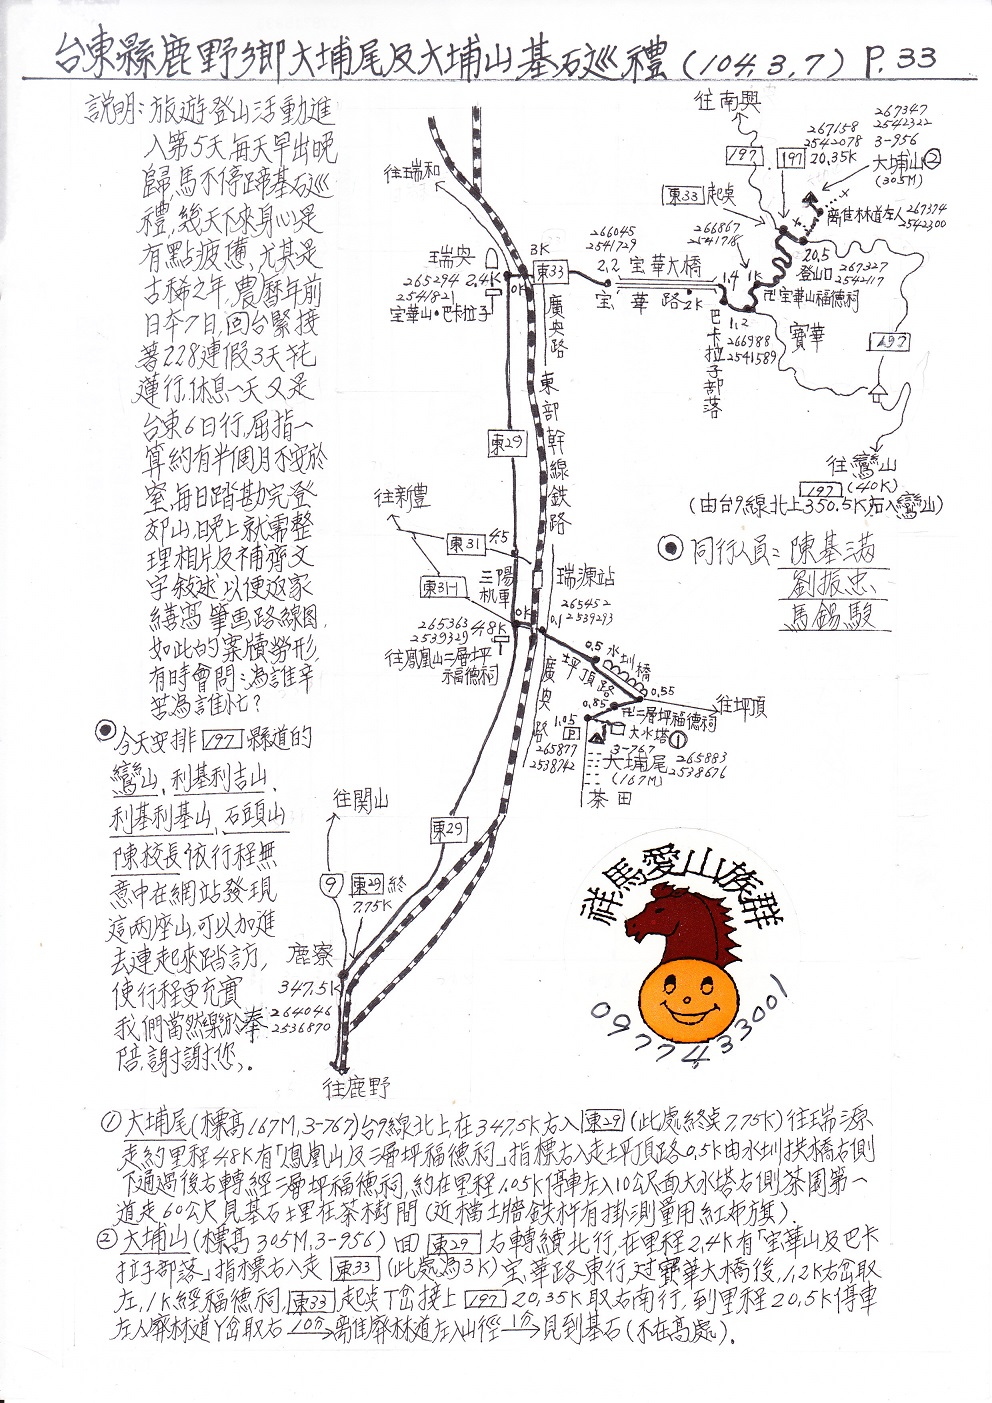 台東縣鹿野鄉大埔尾及大埔山基石巡禮(104.3.7) P.33
說明:旅遊登山活動進
入第5天,每天早出晚
歸,馬不停蹄基石巡
禮,幾天下來身心是
有點疲憊,尤其是
古稀之年,農曆年前
日本7日,回台緊接
著228連假3天花
蓮行,休息一天又是
台東6日行,屈指一
算約有半個月不安於
室,每日踏勘完登
郊山,晚上就需整
理相片及補齊文
字敘述,以便返家
繕寫筆画路線図,
如此的案牘勞形,
有時會問:為誰辛
苦為誰忙?
今天安排 197 縣道的
鸞山、利基利吉山、
利基利基山、石頭山
陳校長依行程無
意中在網站發現
這兩座山,可以加進
去連起來踏訪,
使行程更充實
我們當然樂於奉
陪,謝謝您,.
往南興
197
197
267158
2542078
20.35K
267347
2542322
3-956
大埔山②
(305M)
往瑞和
東33 起點
离隹林道左入 267374
2542300
266045
2541729
266867
2541718
瑞央
265294 2.4K
2541821
宝華山·巴卡拉子
3K
東33
0K
2.2 宝華大橋
宝華路 2K
1.4
1K
20.5
登山口 267327
2542117
卍宝華山福德祠
1.2
266988
2541589
巴卡拉子部落
寶華
197
廣央路
東部幹線鉄路
東29
往鸞山
197 (40K)
(由台9線北上350.5K右入鸞山)
往新豊
東31 4.5
東31-1
三陽机車
0K
265363 4.8K
2539329
往鳳凰山二層坪
福德祠
瑞源站
265452
0.1 2539293
同行人員: 陳基滿
劉振忠
馬錫駿
廣央路
坪頂路
0.5 水圳橋
0.55
往坪頂
0.85 卍二層坪福德祠
1.05 P
265877
2538742
大水塔①
3-767
大埔尾 265883
(167M) 2538676
茶田
往関山
東29
9
東29 終
7.75K
鹿寮
347.5K
264046
2536870
往鹿野
祥馬愛山族群
0977433001
① 大埔尾(標高167M,3-767)台9線北上,在347.5K右入 東29 (此處終点7.75K)往瑞源
走約里程4.8K有「鳳凰山及二層坪福德祠」指標右入走坪頂路0.5K由水圳拱橋右側
下通過後右轉經二層坪福德祠,約在里程1.05K停車左入10公尺面大水塔右側茶園第一
道走60公尺見基石土里在茶樹間(近檔土牆鉄杆有掛測量用紅布旗).
② 大埔山(標高305M,3-956) 回 東29 右轉續北行,在里程2.4K有「宝華山及巴卡
拉子部落」指標右入走 東33 (此處為3K)宝華路東行,过寶華大橋後,1.2K右岔取
左,1K經福德祠,東33 起点丁岔接上 197 20.35K取右南行,到里程20.5K停車
左入廢林道Y岔取右 10分→離隹廢林道左入山徑 1分→見到基石(不在高處).